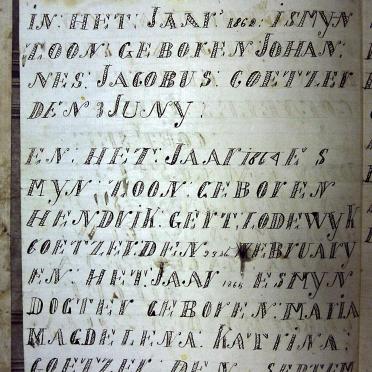 IN HET JAAR 1862 ISMYN
ZOON GEBOREN JOHAN
NES JACOBUS COETZER
DEN 3 JUNY
EN HET JAAR 1864 ES
MYN ZOON GEBOREN
HENDRIK GERT LODEWYK
COETZER DEN FEBRUARY
EN HET JAAR 1866 ESMYN
DOGTER GEBOREN MARIA
MAGDELENA KATRINA
COETZER DEN SEPTEM